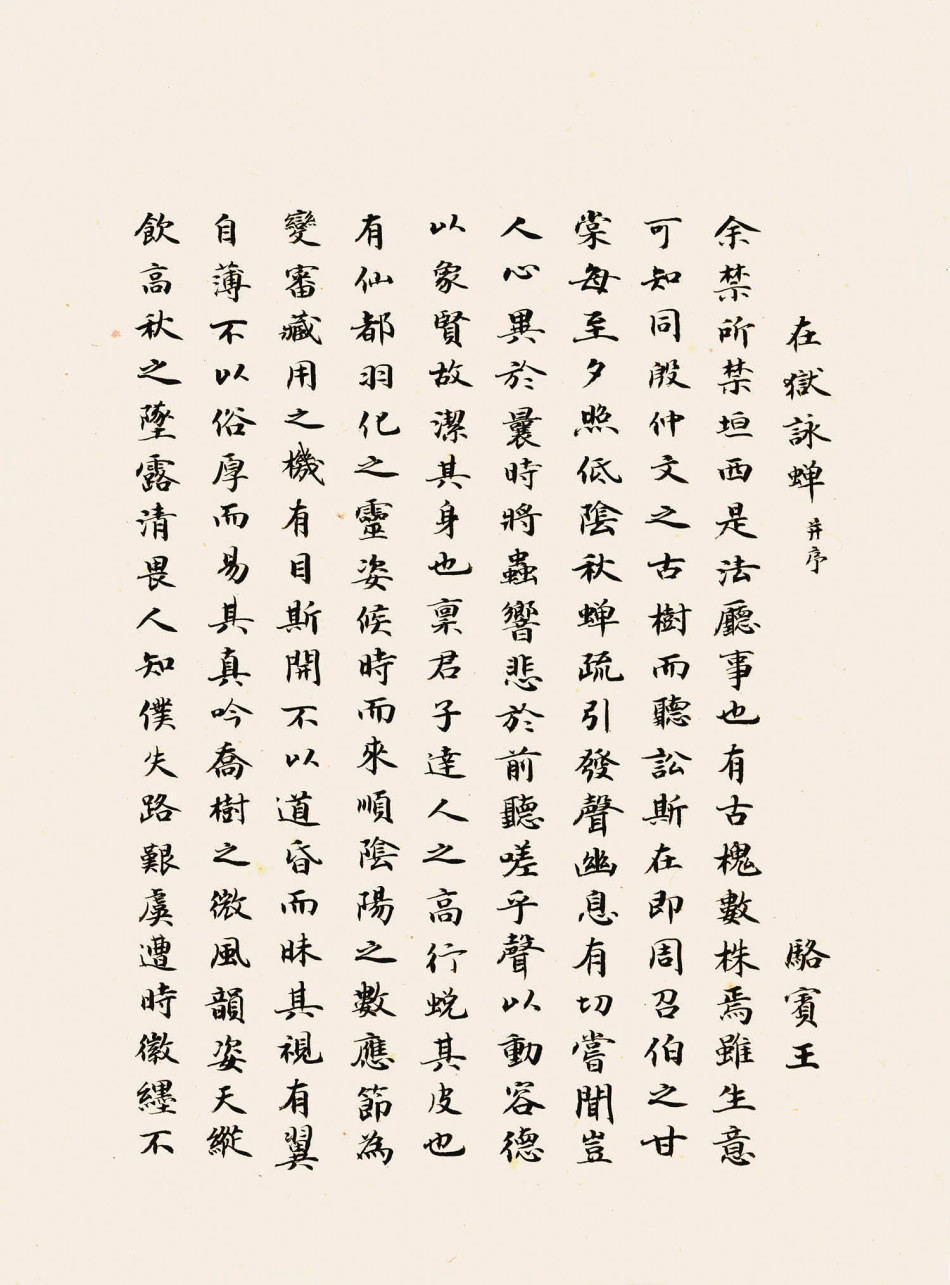 在獄詠蟬 并序 駱賓王
余禁所禁垣西是法廳事也有古槐數株焉雖生意
可知同殷仲文之古樹而聽訟斯在即周召伯之甘
棠每至夕照低陰秋蟬疏引發聲幽息有切嘗聞豈
人心異於曩時將蟲響悲於前聽嗟乎聲以動容德
以象賢故潔其身也禀君子達人之高行蛻其皮也
有仙都羽化之靈姿候時而來順陰陽之數應節為
變審藏用之機有目斯開不以道昏而昧其視有翼
自薄不以俗厚而易其真吟喬樹之微風韻姿天縱
飲高秋之墜露清畏人知僕失路艱虞遭時徽纆不